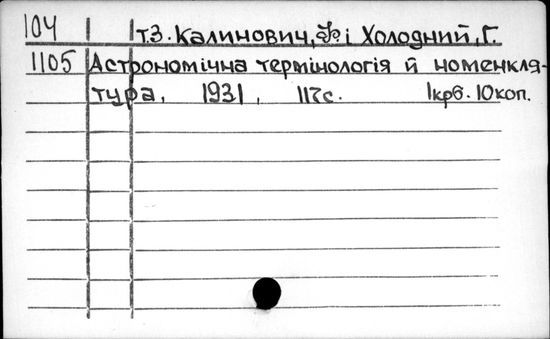 104 т.3. Калинович, Ф. і Холодний, Г.
1105 Астрономічна термінологія й номенкля-
тура, 1931, 117с. 1крб. 10коп.